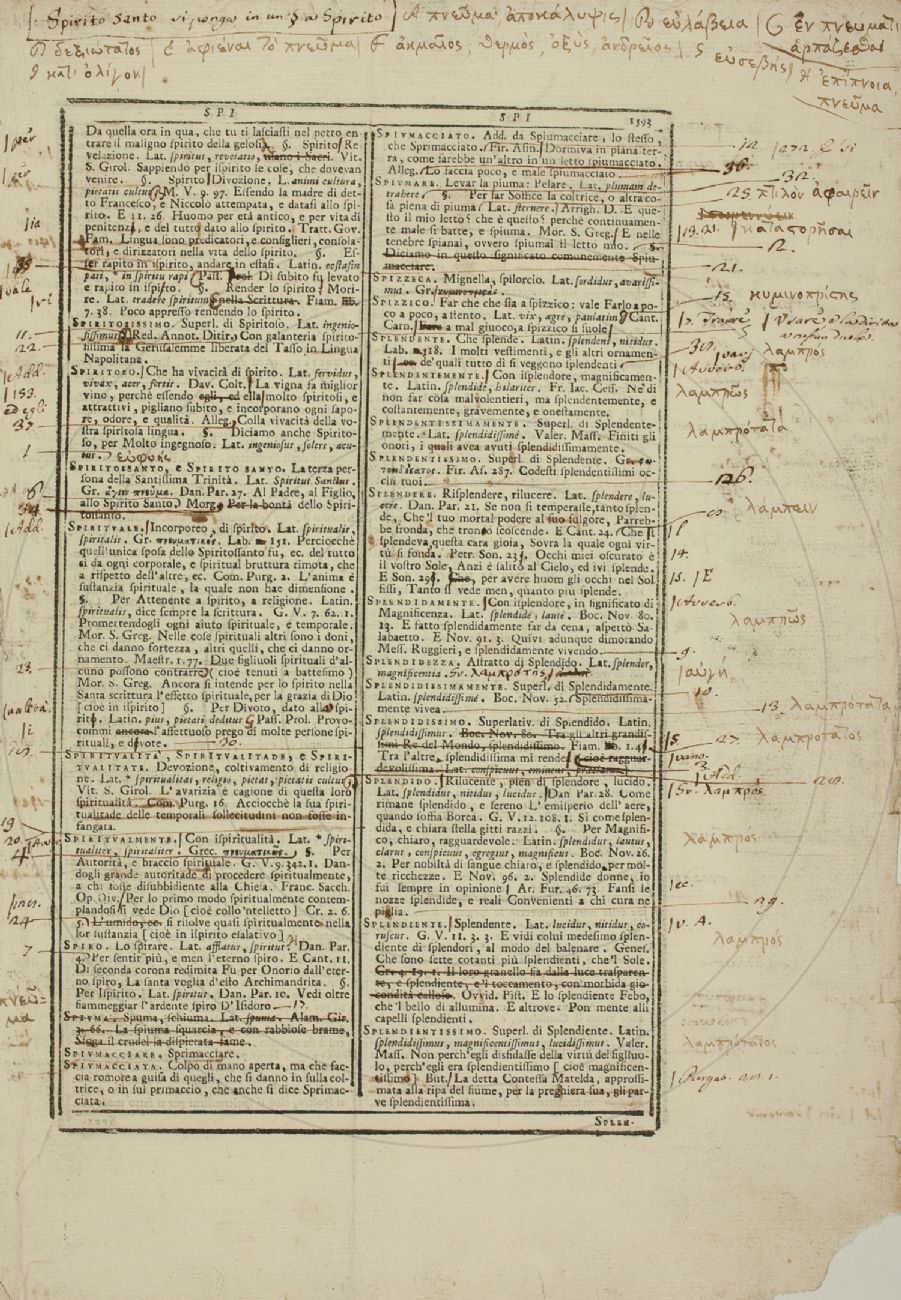 [ Spirito Santo si ponga in un § a Spirito ] A πνεῦμα, ἀποκάλυψις εὐλάβεια ἐν πνεύματι
δεξιωταῖος ἀφιέναι τὸ πνεῦμα ἀκμαῖος, θερμός, ὀξὺς, ἀνδρεῖος εὐσεβής ἁρπάζεσθαι
κατ' ὀλίγον ἐπίπνοια
πνεῦμα
SPI
Da quella ora in qua, che tu ti lasciasti nel petto en-
trare il maligno spirito della gelosia. §. Spirito Re-
velazione. Lat. spiritus, revelatio, Vit.
S. Girol. Sappiendo per ispirito le cose, che dovevan
venire. §. Spirito Divozione. L. animi cultura,
pietatis cultus M. V. 9. 97. Essendo la madre di det-
to Francesco, e Niccolò attempata, e datasi allo spi-
rito. E 11. 26. Huomo per età antico, e per vita di
penitenza, e del tutto dato allo spirito. Tratt. Gov.
Fam. Lingua sono predicatori, e consiglieri, consola-
tori, e dirizzatori nella vita dello spirito. §. Es-
ser rapito in ispirito, andare in estasi. Latin. ecstasin
pati, * in spiritu rapi Pass. Prol. Di subito fu levato
e rapito in ispirito. §. Render lo spirito Mori-
re. Lat. tradere spiritum nella Scrittura. Fiam. lib.
7. 38. Poco appresso rendendo lo spirito.
SPIRITOSISSIMO. Superl. di Spiritoso. Lat. ingenio-
sissimus Red. Annot. Ditir. Con galanteria spirito-
sissima la Gerusalemme liberata del Tasso in Lingua
Napolitana.
SPIRITOSO. Che ha vivacità di spirito. Lat. fervidus,
vivax, acer, fortis. Dav. Colt. La vigna fa miglior
vino, perchè essendo egli, ed ella molto spiritosi, e
attrattivi, pigliano subito, e incorporano ogni sapo-
re, odore, e qualità. Alleg. Colla vivacità della vo-
stra spiritosa lingua. §. Diciamo anche Spirito-
so, per Molto ingegnoso. Lat. ingeniosus, solers, acu-
tus. εὐφυής
SPIRITOSSANTO, e SPIRITO SANTO. La terza per-
sona della Santissima Trinità. Lat. Spiritus Sanctus.
Gr. ἅγιον πνεῦμα. Dan. Par. 27. Al Padre, al Figlio,
allo Spirito Santo. Morg. Per la bontà dello Spiri-
tossanto.
SPIRITUALE. Incorporeo, di spirito. Lat. spiritualis,
spiritalis. Gr. πνευματικός. Lab. 151. Perciocchè
quell'unica sposa dello Spiritossanto fu, ec. del tutto
sì da ogni corporale, e spiritual bruttura rimota, che
a rispetto dell'altre, ec. Com. Purg. 2. L'anima è
sustanzia spirituale, la quale non hae dimensione.
§. Per Attenente a spirito, a religione. Latin.
spiritualis, dice sempre la scrittura. G. V. 7. 62. 1.
Promettendogli ogni aiuto spirituale, e temporale.
Mor. S. Greg. Nelle cose spirituali altri sono i doni,
che ci danno fortezza, altri quelli, che ci danno or-
namento. Maestr. 1. 77. Due figliuoli spirituali d'al-
cuno possono contrarre (cioè tenuti a battesimo)
Mor. S. Greg. Ancora si intende per lo spirito nella
Santa scrittura l'effetto spirituale, per la grazia di Dio
[cioè in ispirito] §. Per Divoto, dato allo spi-
rito. Latin. pius, pietati deditus Pass. Prol. Provo-
commi ancora l'affettuoso prego di molte persone spi-
rituali, e devote.
SPIRITUALITÀ, SPIRITUALITADE, e SPIRI-
TUALITATE. Devozione, coltivamento di religio-
ne. Lat. * spiritualitas, religio, pietas, pietatis cultus
Vit. S. Girol. L'avarizia è cagione di questa loro
spiritualità. Com. Purg. 16. Acciocchè la sua spiri-
tualitade delle temporali sollecitudini non fosse in-
fangata.
SPIRITUALMENTE. Con ispiritualità. Lat. * spiri-
tualiter, spiritaliter. Grec. πνευματικῶς. §. Per
Autorità, e braccio spirituale. G. V. 9. 342. 1. Dan-
dogli grande autoritade di procedere spiritualmente,
a chi fosse disubbidiente alla Chiesa. Franc. Sacch.
Op. Div. Per lo primo modo spiritualmente contem-
plandosi vede Dio [cioè collo'ntelletto] Cr. 2. 6.
5. L'umido, ec. si risolve quasi spiritualmente nella
lor sustanzia [cioè in ispirito esalativo]
SPIRO. Lo spirare. Lat. afflatus, spiritus. Dan. Par.
4. Per sentir più, e men l'eterno spiro. E Cant. 11.
Di seconda corona redimita Fu per Onorio dall'eter-
no spiro, La santa voglia d'esto Archimandrita. §.
Per Ispirito. Lat. spiritus. Dan. Par. 10. Vedi oltre
fiammeggiar l'ardente spiro D'Isidoro
SPIUMA. Spuma, schiuma. Lat. spuma. Alam. Gir.
3. 66. La spiuma squarcia, e con rabbiose brame,
Sfoga il crudel la dispietata fame.
SPIUMACCIARE. Sprimacciare.
SPIUMACCIATA. Colpo di mano aperta, ma che fac-
cia romore a guisa di quegli, che si danno in sulla col-
trice, o in sul primaccio, che anche si dice Sprimac-
ciata.
SPI 1593
SPIUMACCIATO. Add. da Spiumacciare, lo stesso,
che Sprimacciato. Fir. Asin. Dormiva in piana ter-
ra, come sarebbe un'altro in un letto spiumacciato.
Alleg. Lo faccia poco, e male spiumacciato
SPIUMARE. Levar la piuma: Pelare. Lat. plumam de-
trahere §. Per far Soffice la coltrice, o altra co-
sa piena di piuma Lat. sternere. Arrigh. D. E que-
sto il mio letto? che è questo? perchè continuamen-
te male si batte, e spiuma. Mor. S. Greg. E nelle
tenebre spianai, ovvero spiumai il letto mio. §.
Diciamo in questo significato comunemente Spiu-
macciare.
SPIZZECA. Mignella, spilorcio. Lat. sordidus, avarissi-
mus. Gr.
SPIZZICO. Far che che sia a spizzico: vale Farlo a po-
co a poco, a stento. Lat. vix, aegre, paulatim Cant.
Carn. a mal giuoco, a spizzico si suole
SPLENDENTE. Che splende. Lat. splendens, nitidus.
Lab. 318. I molti vestimenti, e gli altri ornamen-
ti, ec. de' quali tutto dì sì veggeno splendenti
SPLENDENTEMENTE. Con isplendore, magnificamen-
te. Latin. splendide, hilariter. Fr. Iac. Cess. Nè di
non far cosa malvolentieri, ma splendentemente, e
costantemente, gravemente, e onestamente.
SPLENDENTISSIMAMENTE. Superl. di Splendente-
mente. Lat. splendidissimè. Valer. Mass. Finiti gli
onori, i quali avea avuti splendidissimamente.
SPLENDENTISSIMO. Superl. di Splendente. Gr.
Fir. As. 287. Codesti splendentissimi oc-
chi tuoi.
SPLENDERE. Risplendere, rilucere. Lat. splendere, lu-
cere. Dan. Par. 21. Se non si temperasse, tanto splen-
de, Che'l tuo mortal podere al suo fulgore, Parreb-
be fronda, che trono scoscende. E Cant. 24. Che sì
splendeva, questa cara gioia, Sovra la quale ogni vir-
tù si fonda. Petr. Son. 235. Occhi miei oscurato è
il vostro Sole, Anzi è salito al Cielo, ed ivi splende.
E Son. 298. Che, per avere huom gli occhi nel Sol
fissi, Tanto si vede men, quanto più splende.
SPLENDIDAMENTE. Con isplendore, in significato di
Magnificenza. Lat. splendidè, lautè. Boc. Nov. 80.
13. E fatto splendidamente far da cena, aspettò Sa-
labaetto. E Nov. 91. 3. Quivi adunque dimorando
Mess. Ruggieri, e splendidamente vivendo
SPLENDIDEZZA. Astratto di Splendido. Lat. splendor,
magnificentia. Gr. λαμπρότης
SPLENDIDISSIMAMENTE. Superl. di Splendidamente.
Latin. splendidissimè. Boc. Nov. 52. Splendidissima-
mente vivea.
SPLENDIDISSIMO. Superlativ. di Splendido. Latin.
splendidissimus. Boc. Nov. 80. Tra gli altri grandis-
simi Re del Mondo, splendidissimo. Fiam. lib. 1. 4.
Tra l'altre, splendidissima mi rende cioè ragguar-
devolissima. Lat. conspicuus, eminens, praeclarus.
SPLENDIDO. Rilucente, pien di splendore, lucido.
Lat. splendidus, nitidus, lucidus. Dan. Par. 28. Come
rimane splendido, e sereno L'emisperio dell'aere,
quando soffia Borea. G. V. 12. 108. 1. Sì come splen-
dida, e chiara stella gitti razzi. §. Per Magnifi-
co, chiaro, ragguardevole. Latin. splendidus, lautus,
clarus, conspicuus, egregius, magnificus. Boc. Nov. 26.
2. Per nobiltà di sangue chiaro, e splendido, per mol-
te ricchezze. E Nov. 96. 2. Splendide donne, io
fui sempre in opinione Ar. Fur. 46. 73. Fansi le
nozze splendide, e reali Convenienti a chi cura ne
piglia.
SPLENDIENTE. Splendente. Lat. lucidus, nitidus, co-
ruscus. G. V. 11. 3. 3. E vidi colui medesimo splen-
diente di splendori, al modo del balenare. Genes.
Che sono sette cotanti più splendienti, che'l Sole.
Cr. 4. 19. 1. Il loro granello sia dalla luce trasparen-
te, e splendiente, e'l toccamento, con morbida gio-
condità calloso. Ovvid. Pist. E lo splendiente Febo,
che'l bello dì allumina. E altrove. Pon mente alli
capelli splendienti.
SPLENDIENTISSIMO. Superl. di Splendiente. Latin.
splendidissimus, magnificentissimus, lucidissimus. Valer.
Mass. Non perch'egli disfidasse della virtù del figliuo-
lo, perch'egli era splendientissimo [cioè magnificen-
tissimo] But. La detta Contessa Matelda, approssi-
mata alla ripa del fiume, per la preghiera sua, gli par-
ve splendientissima.
SPLEN-
11.
22.
Add.
153.
37
1
8
Add.
23.
19
20.
24
7
πνεῦμα
36.
32
25 πτίλον ἀφαιρεῖν
19. 21. καταστορῆσαι
2.
21.
15 κυμινοπρίστης
λαμπρός
Avverb.
λαμπρῶς
λαμπρότατα
26.
λάμπειν
14.
15. E
Avverb.
λαμπρῶς
9.
αὐγή
10.
13. λαμπρότατα
15 27. λαμπρότατος
3.
Add.
Gr. λαμπρός
λαμπρός
ec.
29.
V. A.
λαμπρός
λαμπρότατος
Purgat.